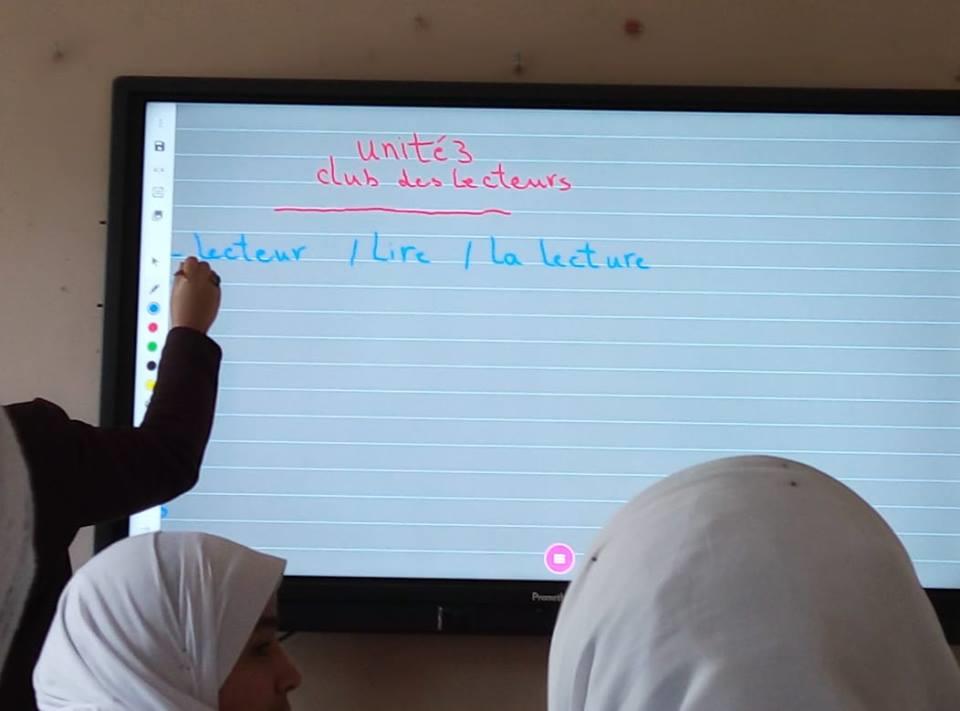 unité 3
club des lecteurs
- lecteur / Lire / La lecture